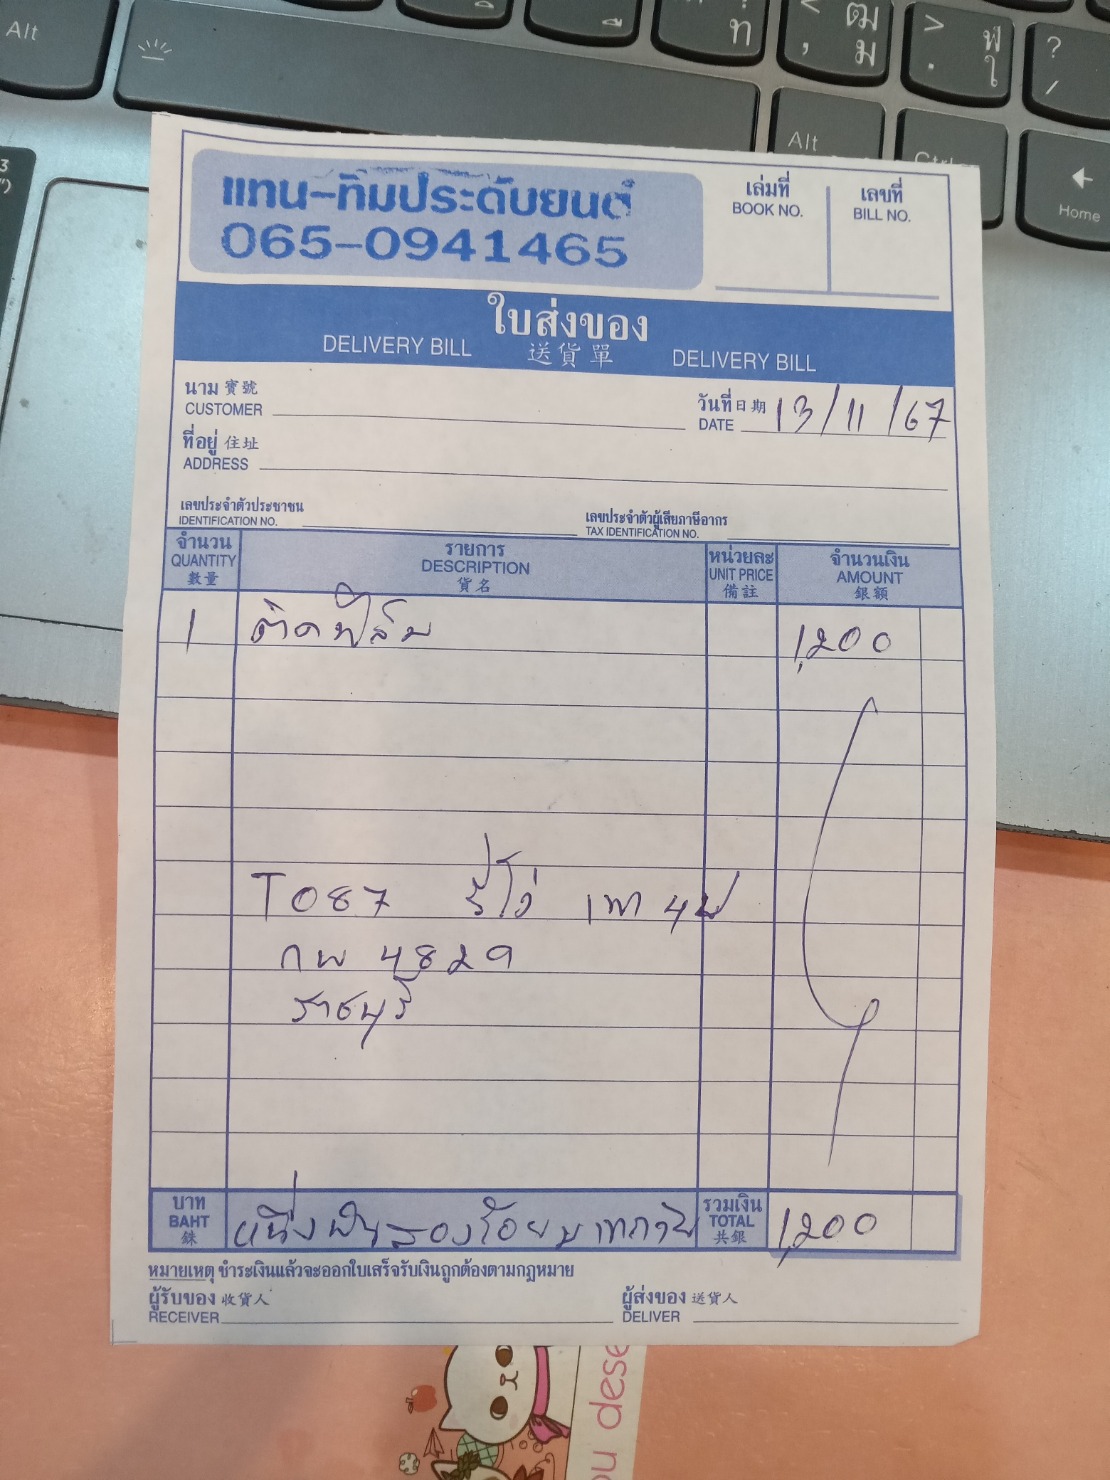 Alt
ท
< ฒ
, ม
> ฬ
. ใ
?
/
Alt
Ctrl
Home
แทน-ทิมประดับยนต์
065-0941465
เล่มที่
BOOK NO.
เลขที่
BILL NO.
ใบส่งของ
DELIVERY BILL 送貨單 DELIVERY BILL
นาม 寶號
CUSTOMER
วันที่ 日期
DATE 13/11/67
ที่อยู่ 住址
ADDRESS
เลขประจำตัวประชาชน
IDENTIFICATION NO.
เลขประจำตัวผู้เสียภาษีอากร
TAX IDENTIFICATION NO.
จำนวน รายการ หน่วยละ จำนวนเงิน
QUANTITY DESCRIPTION UNIT PRICE AMOUNT
數量 貨名 備註 銀額
1 ติดฟิล์ม 1,200
T087 รีโว่ เทา 4ป
กพ 4829
ราชบุรี
บาท
BAHT
銖
หนึ่งพันสองร้อยบาทถ้วน
รวมเงิน
TOTAL
共銀
1,200
หมายเหตุ ชำระเงินแล้วจะออกใบเสร็จรับเงินถูกต้องตามกฎหมาย
ผู้รับของ 收貨人
RECEIVER
ผู้ส่งของ 送貨人
DELIVER
ou dese